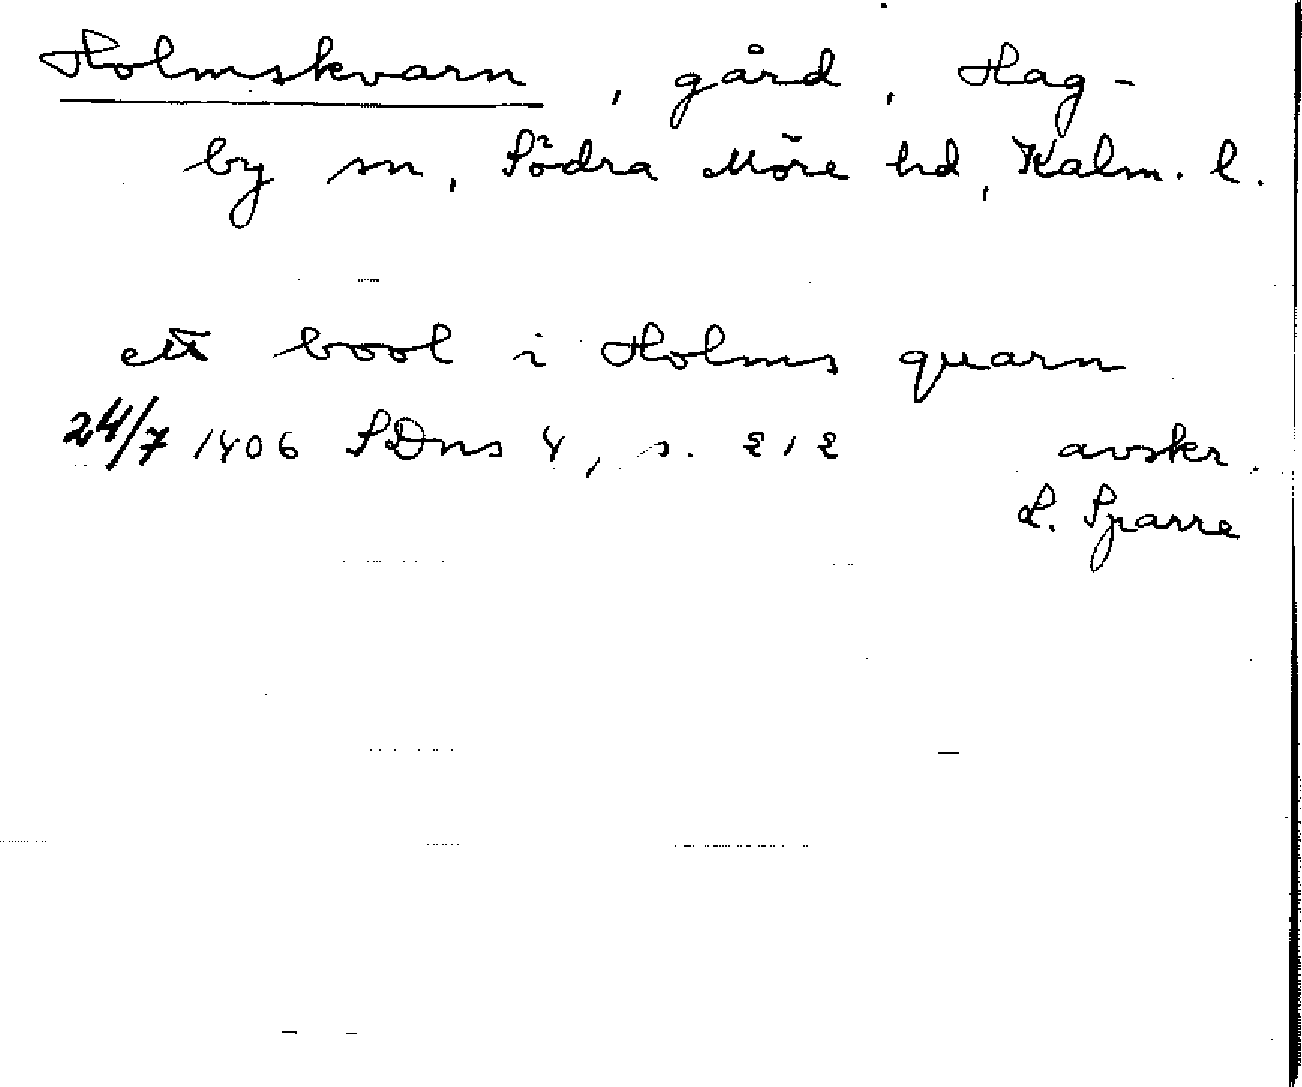 Holmskvarn, gård, Hag-
by sn, Södra Möre hd, Kalm. l.
ett bool i Holms quarn
24/7 1406 SDns 4, s. 212 avskr.
L. Sparre